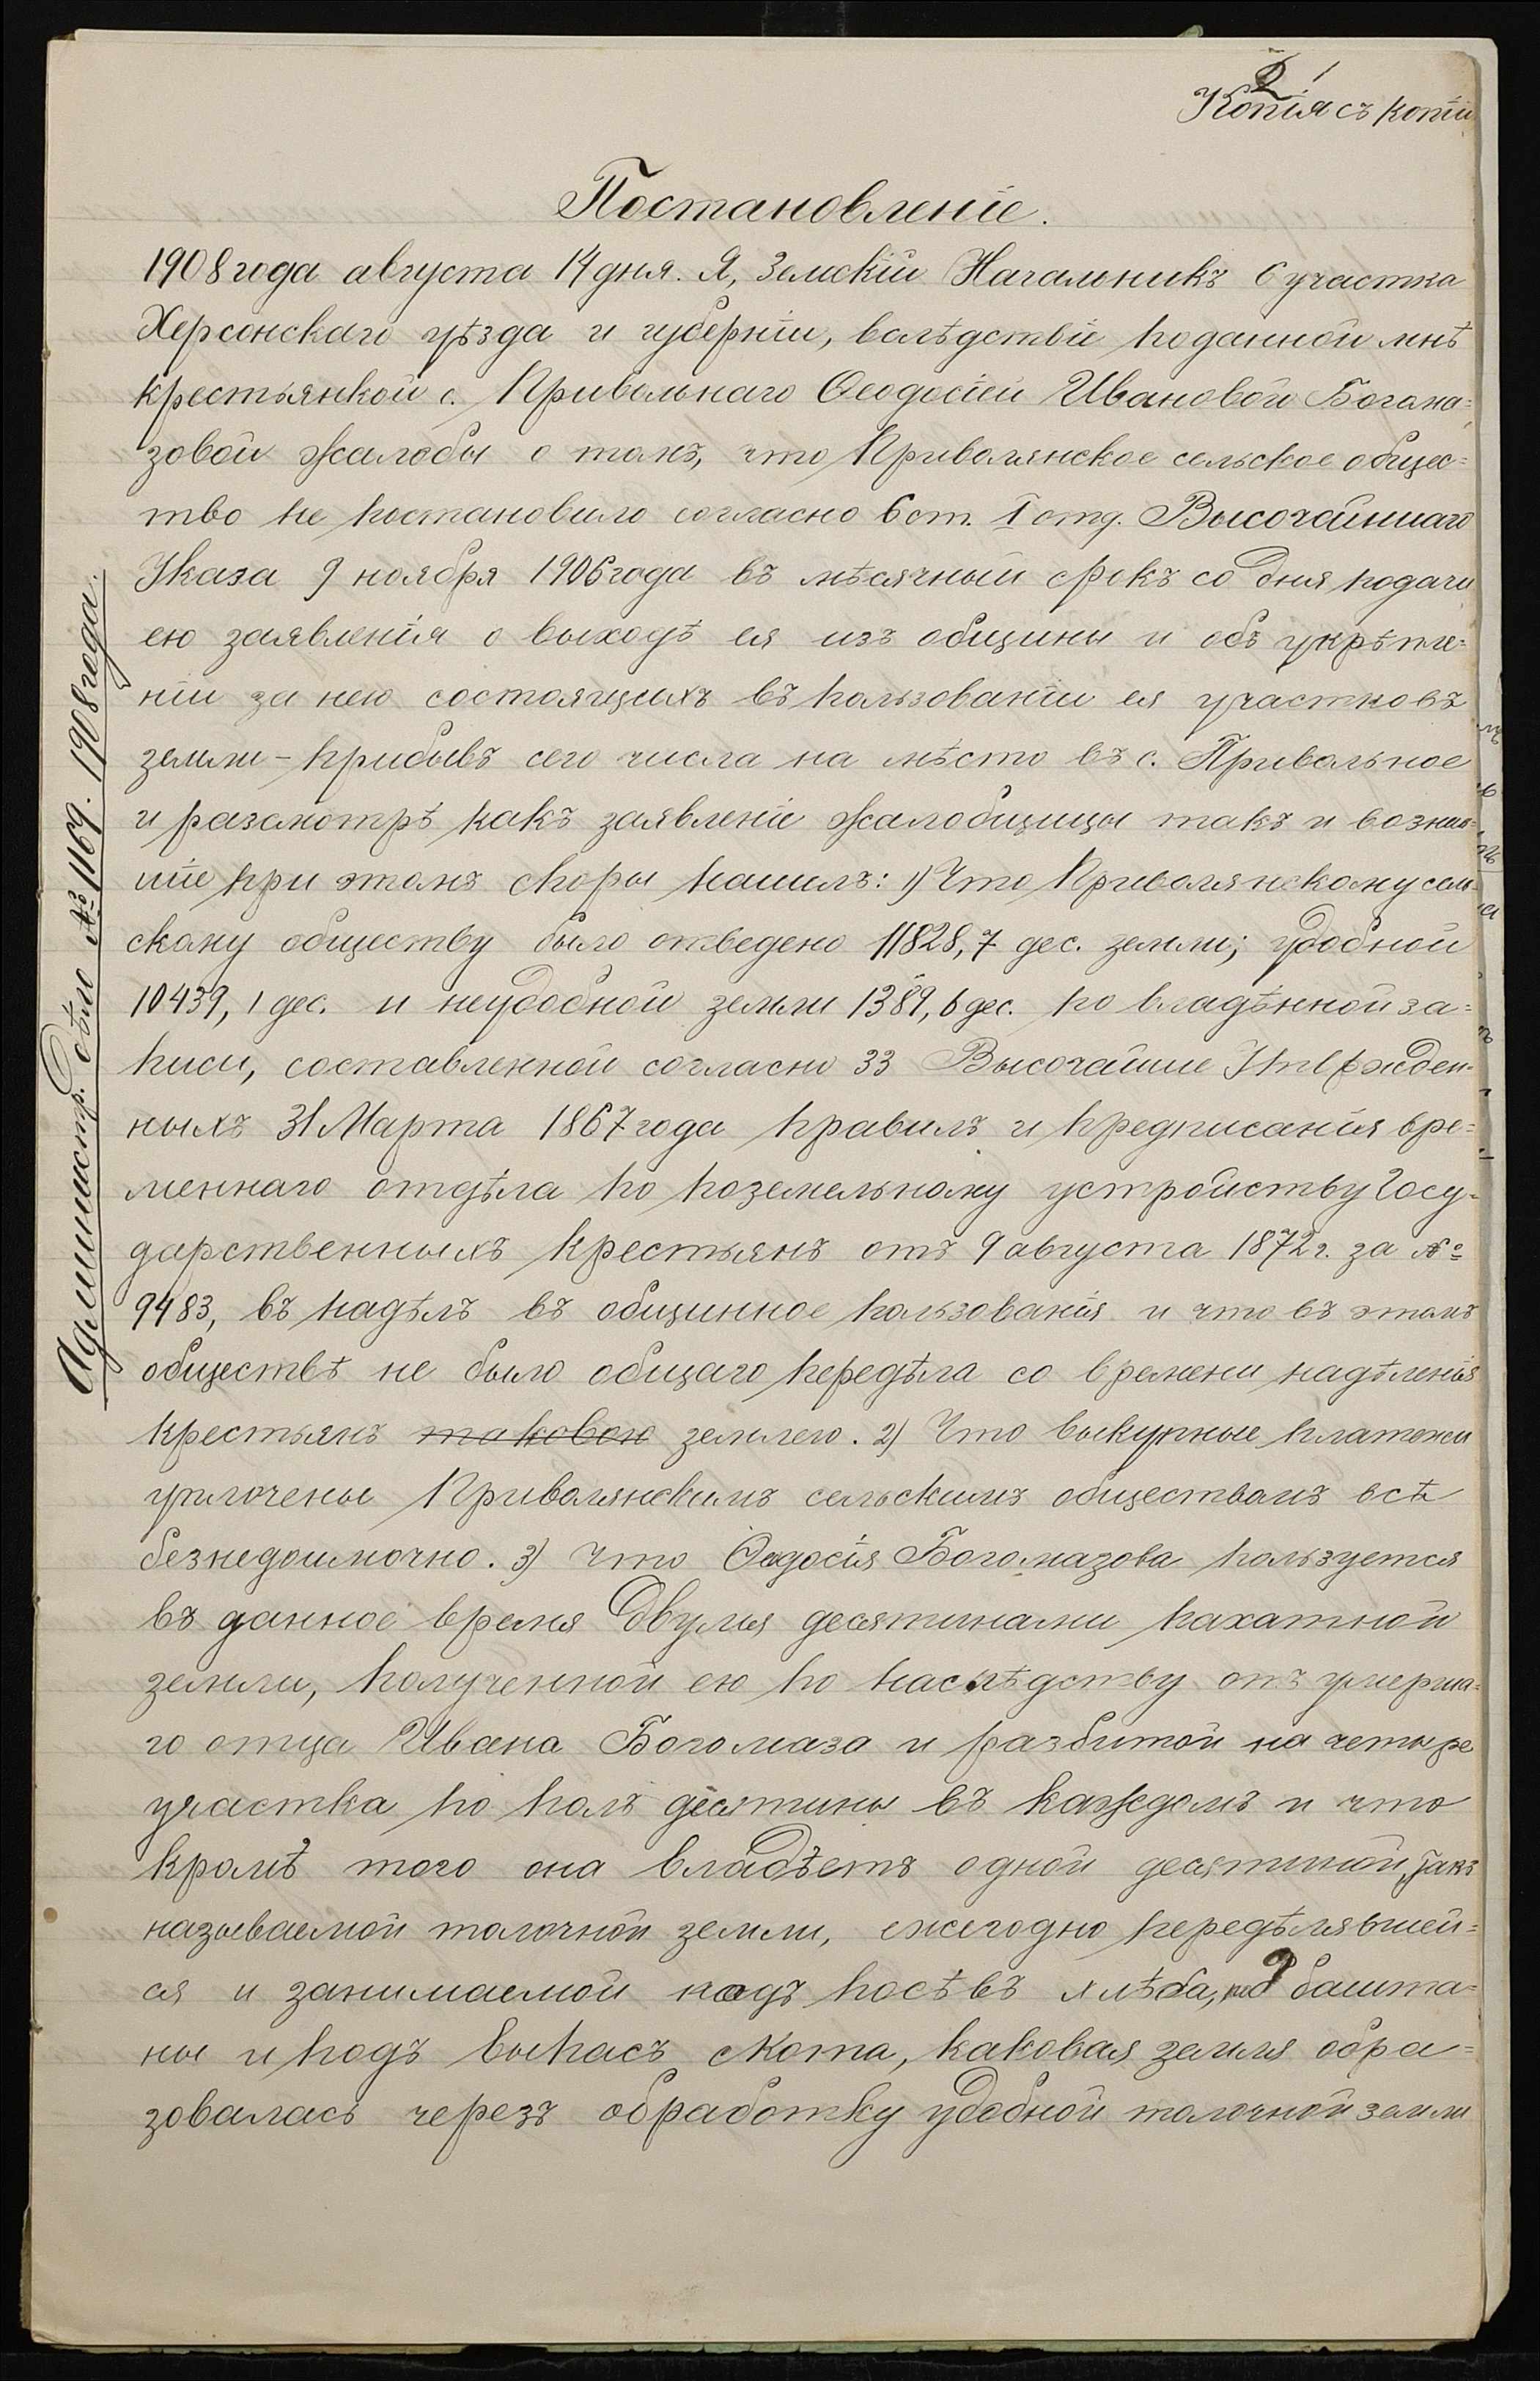 2 1
Копія съ копіи
Постановленіе.
1908 года августа 14 дня. Я, Земскій Начальникъ 6 участка
Херсонскаго уѣзда и губерніи, вслѣдствіе поданной мнѣ
крестьянкой с. Привольнаго Ѳеодосіей Ивановой Богома=
зовой жалобы о томъ, что Привольянское сельское общес=
тво не постановило согласно 6 ст. I отд. Высочайшаго
Указа 9 ноября 1906 года въ мѣсячный срокъ со дня подачи
ею заявленія о выходѣ ея изъ общины и объ укрѣпле=
ніи за нею состоящихъ въ пользованіи ея участковъ
земли - прибывъ сего числа на мѣсто въ с. Привольное
и разсмотрѣ какъ заявленіе жалобщицы такъ и возник=
шіе при этомъ споры нашелъ: 1) Что Привольянскому сель=
скому обществу было отведено 11828,7 дес. земли; удобной
10439,1 дес. и неудобной земли 1389,6 дес. по владѣнной за=
писи, составленной согласно 33 Высочайше Утвержден=
ныхъ 31 Марта 1867 года правилъ и предписанія вре=
меннаго отдѣла по поземельному устройству Госу=
дарственныхъ крестьянъ отъ 9 августа 1872 г. за №
9483, въ надѣлъ въ общинное пользованія и что въ этомъ
обществѣ не было общаго передѣла со времени надѣленія
крестьянъ таковою землею. 2) Что выкупные платежи
уплочены Привольянскимъ сельскимъ обществомъ всѣ
безнедоимочно. 3) Что Ѳедосія Богомазова пользуется
въ данное время двумя десятинами пахатной
земли, полученной ею по наслѣдству отъ умерша=
го отца Ивана Богомаза и разбитой на четыре
участка по полъ десятины въ каждомъ и что
кромѣ того она владѣетъ одной десятиной, такъ
называемой толочной земли, ежегодно передѣлявшей=
ся и занимаемой подъ посѣвъ хлѣба, под башта=
ны и подъ выпасъ скота, каковая земля обра=
зовалась черезъ обработку удобной толочной земли
Администр. дѣло № 1169. 1908 года.